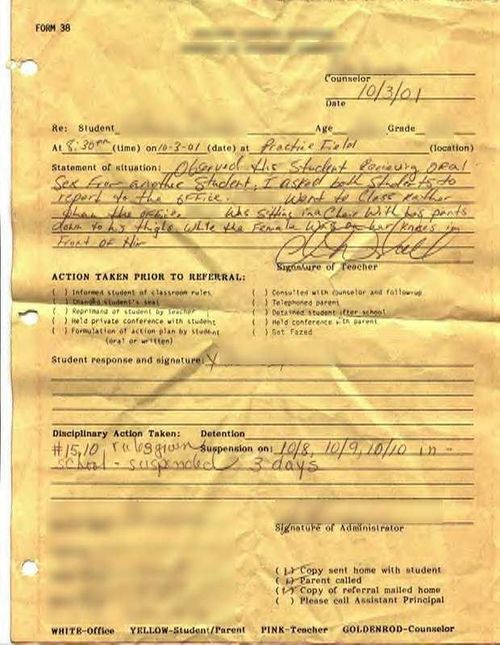 FORM 38
Counselor
10/3/01
Date
Re: Student Age Grade
At 8:30 (time) on 10-3-01 (date) at Practice Field (location)
Statement of situation: Observed this Student Receiving oral
Sex From another Student, I asked both Students to
report to the office. Went to Class Rather
than the office. Was Sitting in a Chair With his pants
down to his thighs While the Female Was on her knees in
Front of Him
Signature of Teacher
ACTION TAKEN PRIOR TO REFERRAL:
( ) Informed student of classroom rules
( ) Changed student's seat
( ) Reprimand of student by teacher
( ) Held private conference with student
( ) Formulation of action plan by student
(oral or written)
( ) Consulted with counselor and follow-up
( ) Telephoned parent
( ) Detained student after school
( ) Held conference with parent
( ) Got Fazed
Student response and signature:
Disciplinary Action Taken: Detention
#15,10, rules given Suspension on: 10/8, 10/9, 10/10 in-
school-suspended 3 days
Signature of Administrator
( ) Copy sent home with student
( ) Parent called
( ) Copy of referral mailed home
( ) Please call Assistant Principal
WHITE-Office YELLOW-Student/Parent PINK-Teacher GOLDENROD-Counselor